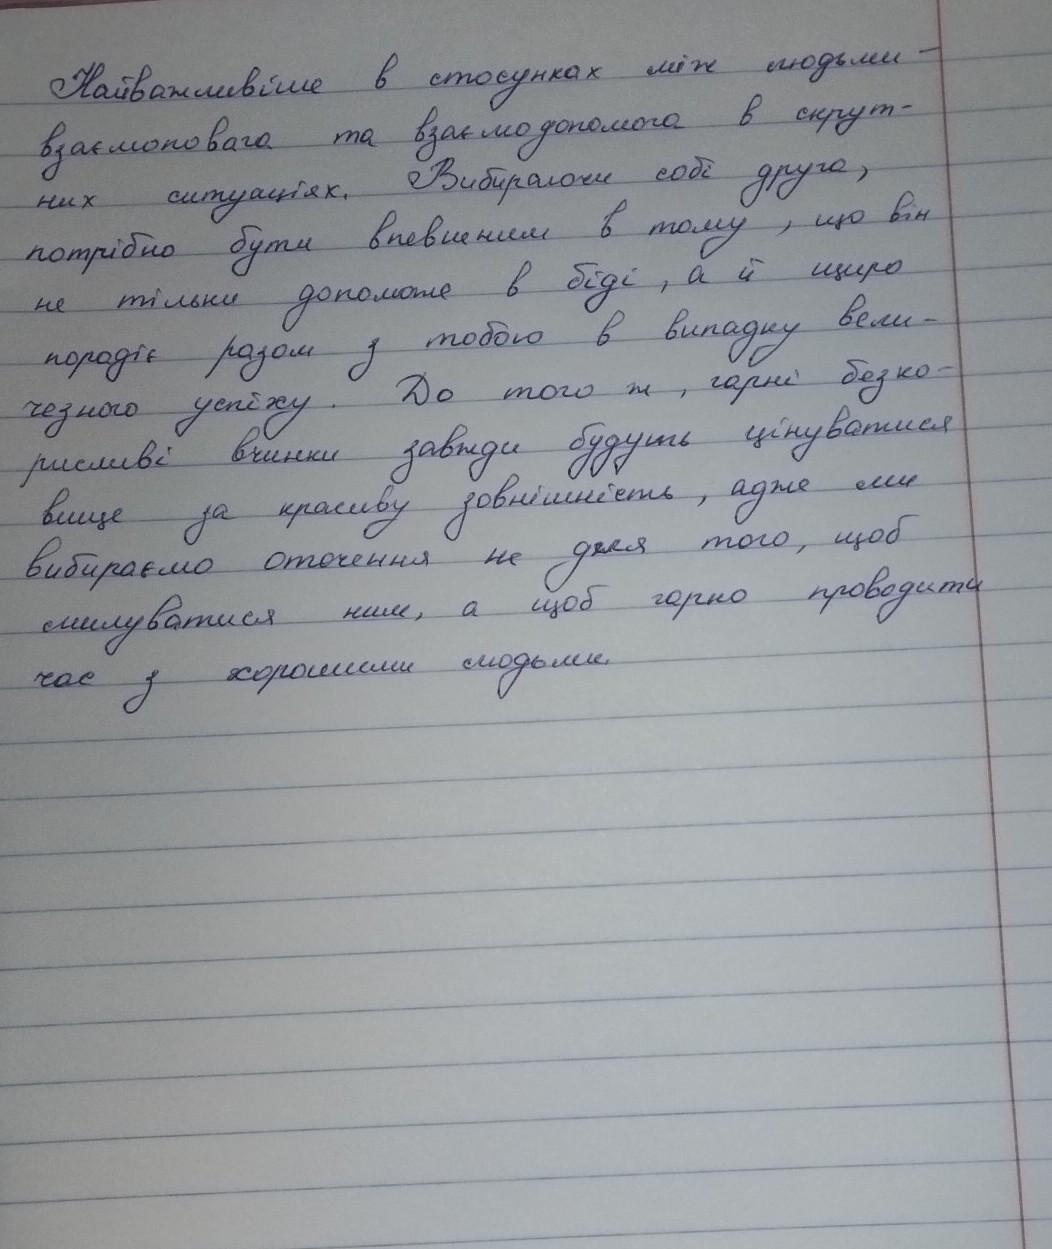 Найважливіше в стосунках між людьми -
взаємоповага та взаємодопомога в скрут-
них ситуаціях. Вибираючи собі друга,
потрібно бути впевненим в тому, що він
не тільки допоможе в біді, а й щиро
порадіє разом з тобою в випадку вели-
чезного успіху. До того ж, гарні безко-
рисливі вчинки завжди будуть цінуватися
вище за красиву зовнішність, адже ми
вибираємо оточення не для того, щоб
милуватися ним, а щоб гарно проводити
час з хорошими людьми.